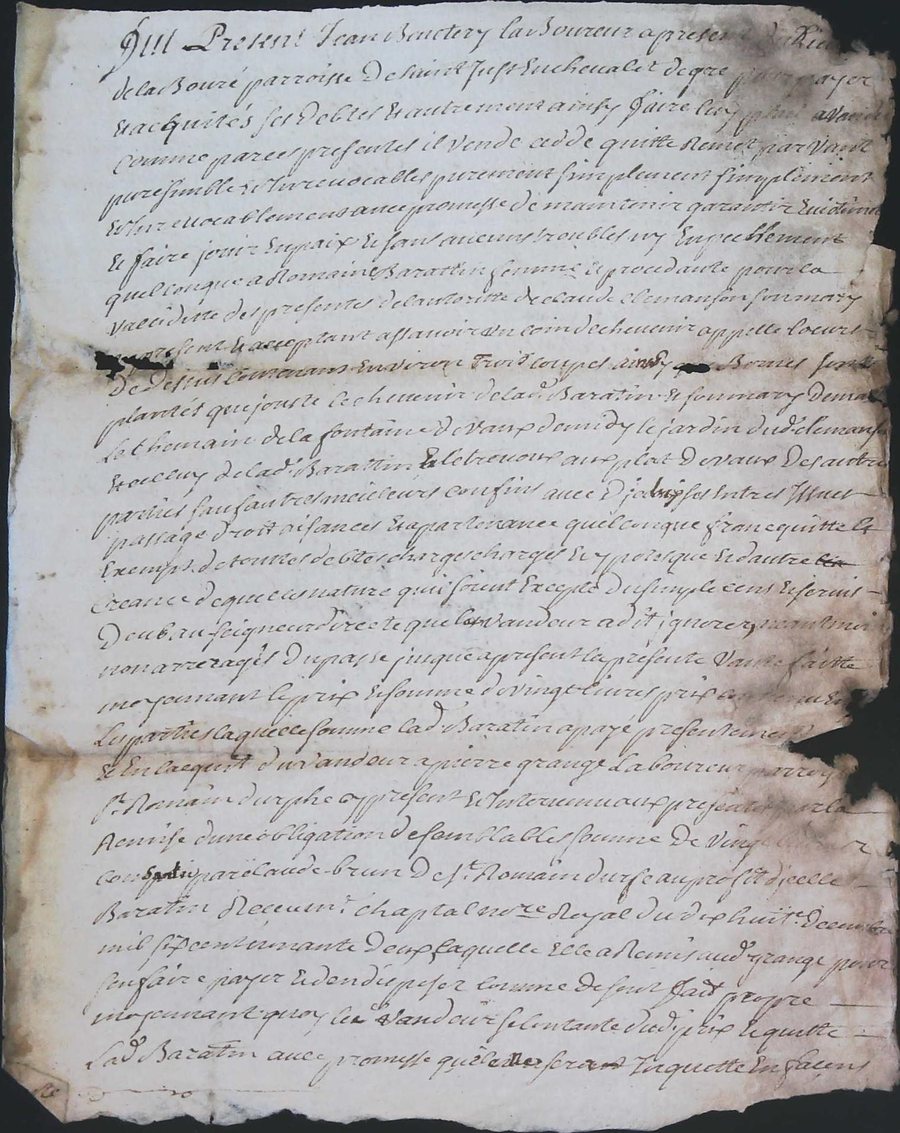 fut Present Jean Boutery laBoureur apresent
de la Bouré parroisse De saint Just En chevalet de gre pour payer
Et acquités ses Debtes Et autrement ainsy faire luy plait a Vandu
Comme par ces presentes il Vende cedde quitte Remet par Vante
pure simble Et Inrevocables purement simplement simplement
Et Inrevocablement avec promesse de maintenir garantir Evictionné
Et faire jouir En paix Et sans aucuns troubles ny Enpechement
quelconque a Romaine Barattin femme Et procedante pour la
Vallidette des presentes de lautoritte de claude clemanson son mary
present Et acceptant assavoir Un coin de chenevir appelle
De Dessus Contenans Environ Trois coupes ainsy Bornes
plantés que jouste le chenevir de lad. Baratin Et son mary De
Le chemain de la fontaine De Vaux de midy le jardin dud. clemanson
Et celluy de lad. Barattin Et le trevoux aux plat De Vaux Des autre
parties sauf autres meilleurs confins avec D ses Intres Issues
passage Droit aisances Et apartenance quelconque franc quitte Et
Exempt de toutes debtes charges charges Et yppoteque Et dautre
Creance de quelcus nature quil soient Excepté Du simple cens Et servis
Deub au seigneur directe que le Vandeur a dit ignorer neantmoins
non arreragés Du passé jusque apresent la presente Vante faitte
moyennant le prix Et somme de vingt livres prix
Les parties laquelle somme lad Baratin a payé presentement
Et En lacquit du Vandeur a pierre grange Laboureur
St Romain durphe cy present Et Intervenu aux presentes par la
Remise dune obligation de semblables somme De Vingt
consantie par claude brun De St Romain durfe au profit dicelle
Baratin Receu mr chaptal nore Royal du dix huit Decembre
mil six cent nonante Deux laquelle Elle a Remis aud. grange pour
sen faire payer Et den disposer comme de son fait propre
moyennant quoy led Vandeur se contante dud. prix Et quitte
Lad. Baratin avec promesse quelle nen sera Inquette En façons